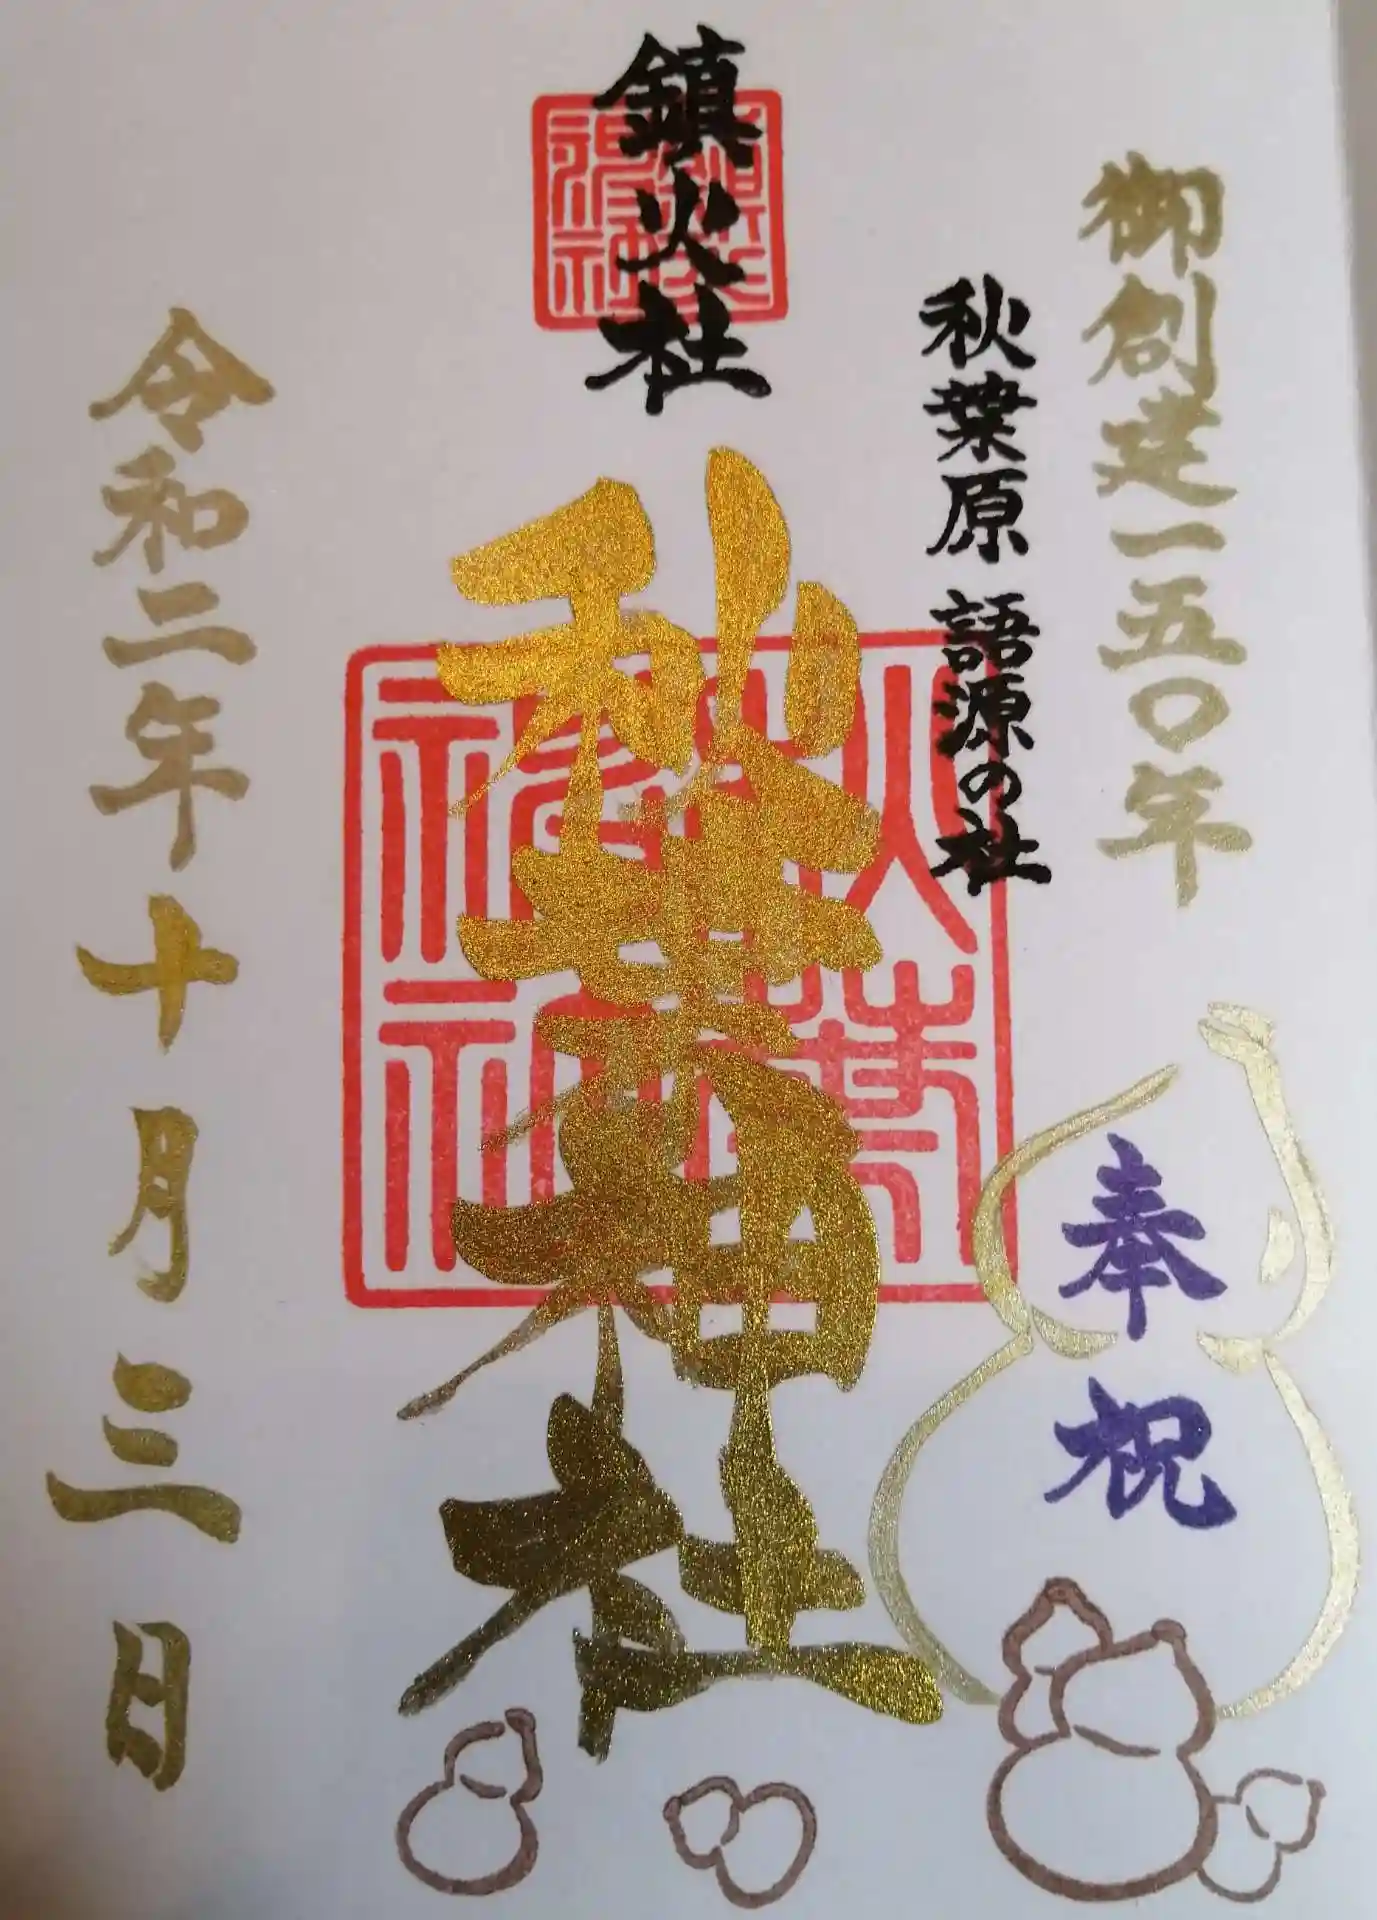 御創建一五〇年
奉祝
秋葉原 語源の社
鎮火社
秋葉神社
令和二年十月三日
秋葉神社